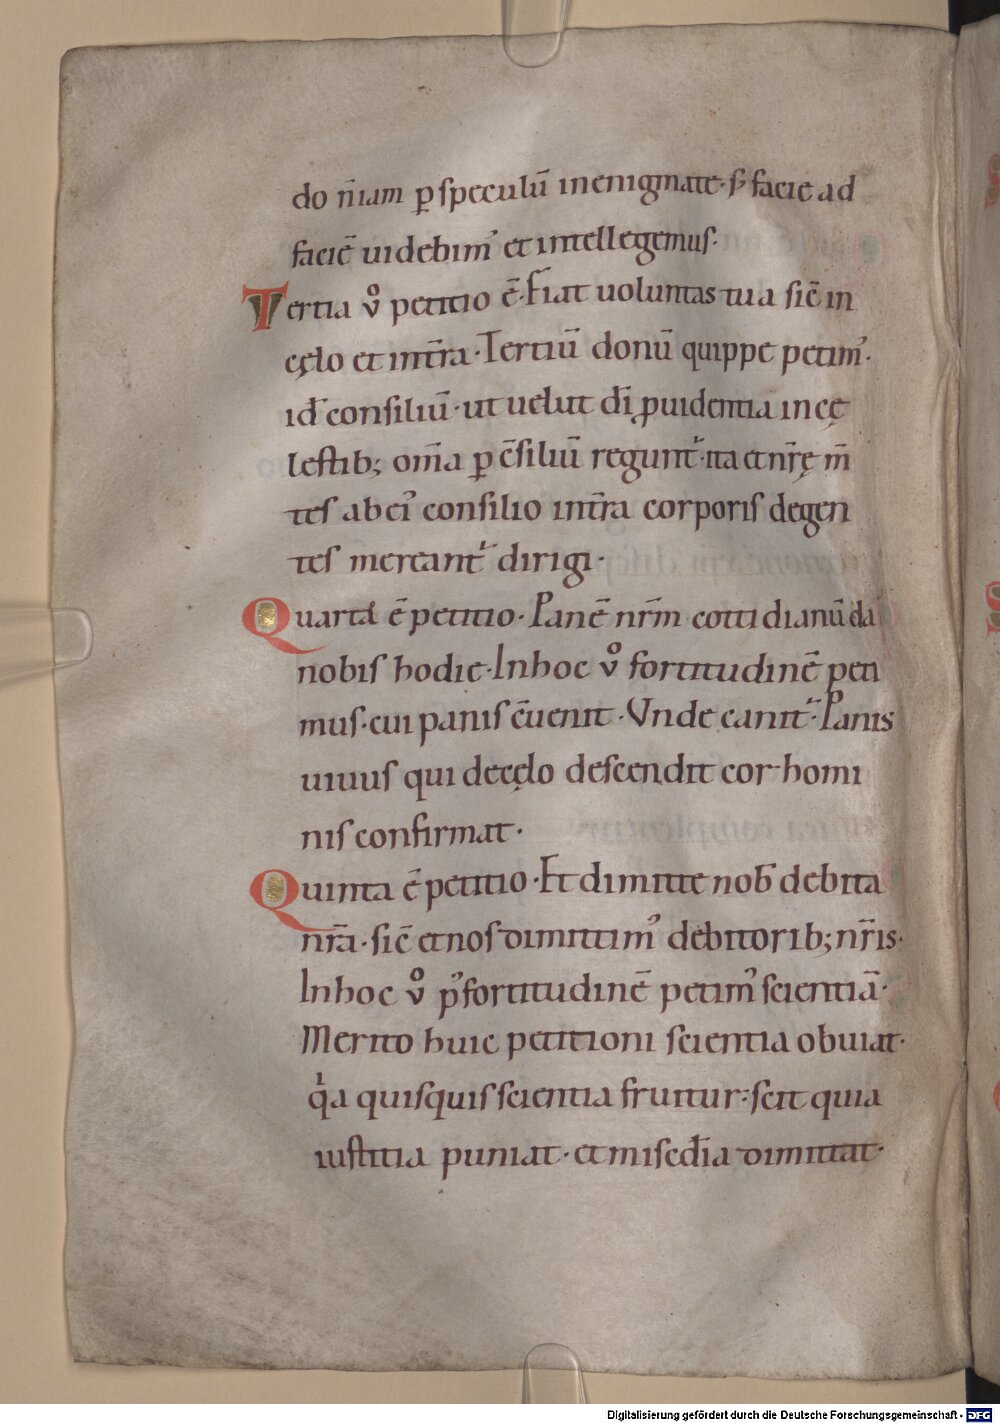 do n̄iam ꝑ speculū in enigmate· s; facie ad
faciē uidebim᾿ et intellegemus·
Tertia v̊ petitio ē· Fiat uoluntas tua sic̄ in
cęlo et in tr̄a· Tertiū donū quippe petim᾿·
id̄ consiliū· ut uelut dī ꝓuidentia in cę
lestib; om̄a ꝑ c̄siliū regunt᷑· ita et nr̄ę m̄
tes ab ei᾿ consilio in tr̄a corporis degen
tes mereant᷑ dirigi·
Quarta ē petitio· Panē nr̄m cottidianū da
nobis hodie· In hoc v̊ fortitudinē peti
mus· cui panis c̄uenit· Vnde canit᷑· Panis
uiuus qui de cęlo descendit cor homi
nis confirmat·
Quinta ē petitio· Et dimitte nob̄ debita
nr̄a· sic̄ et nos dimittim᾿ debitorib; nr̄is·
In hoc v̊ p᾿ fortitudinē petim᾿ scientiā·
Merito huic petitioni scientia obuiat·
qͥa quisquis scientia fruitur· scit quia
iustitia puniat· et mis̄edia dimittat·
Digitalisierung gefördert durch die Deutsche Forschungsgemeinschaft - DFG